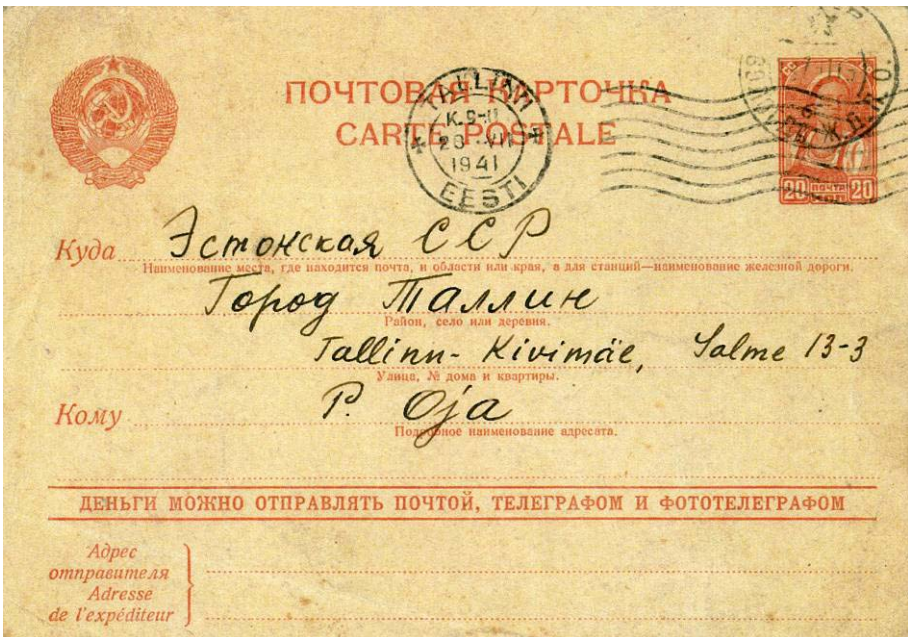 ПОЧТОВАЯ КАРТОЧКА
CARTE POSTALE
TALLINN
K. 9-11
1941
EESTI
20 ПОЧТА 20
Куда Эстонская ССР
Наименование места, где находится почта, и области или края, а для станций—наименование железной дороги.
Город Таллин
Район, село или деревня.
Tallinn- Kivimäe, Salme 13-3
Улица, № дома и квартиры.
Кому P. Oja
Подробное наименование адресата.
ДЕНЬГИ МОЖНО ОТПРАВЛЯТЬ ПОЧТОЙ, ТЕЛЕГРАФОМ И ФОТОТЕЛЕГРАФОМ
Адрес
отправителя
Adresse
de l'expéditeur